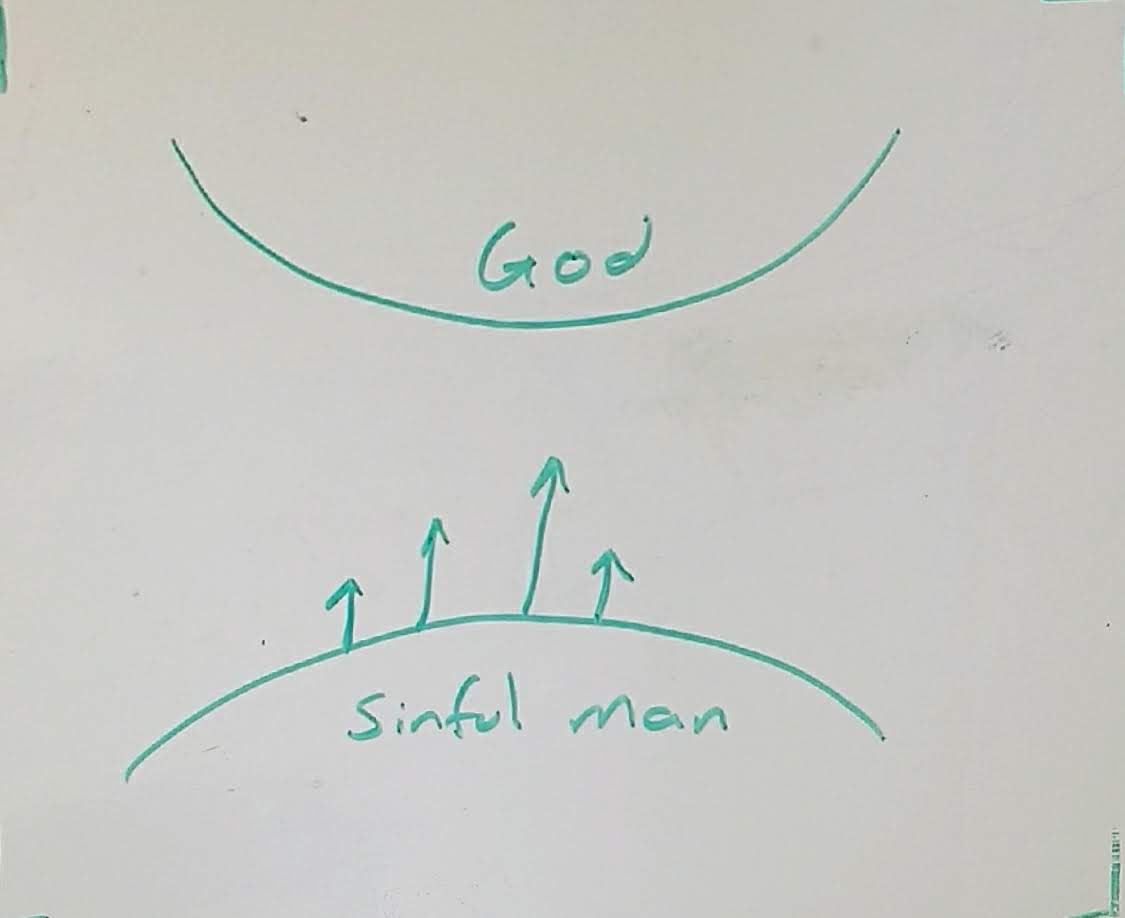 God
Sinful man